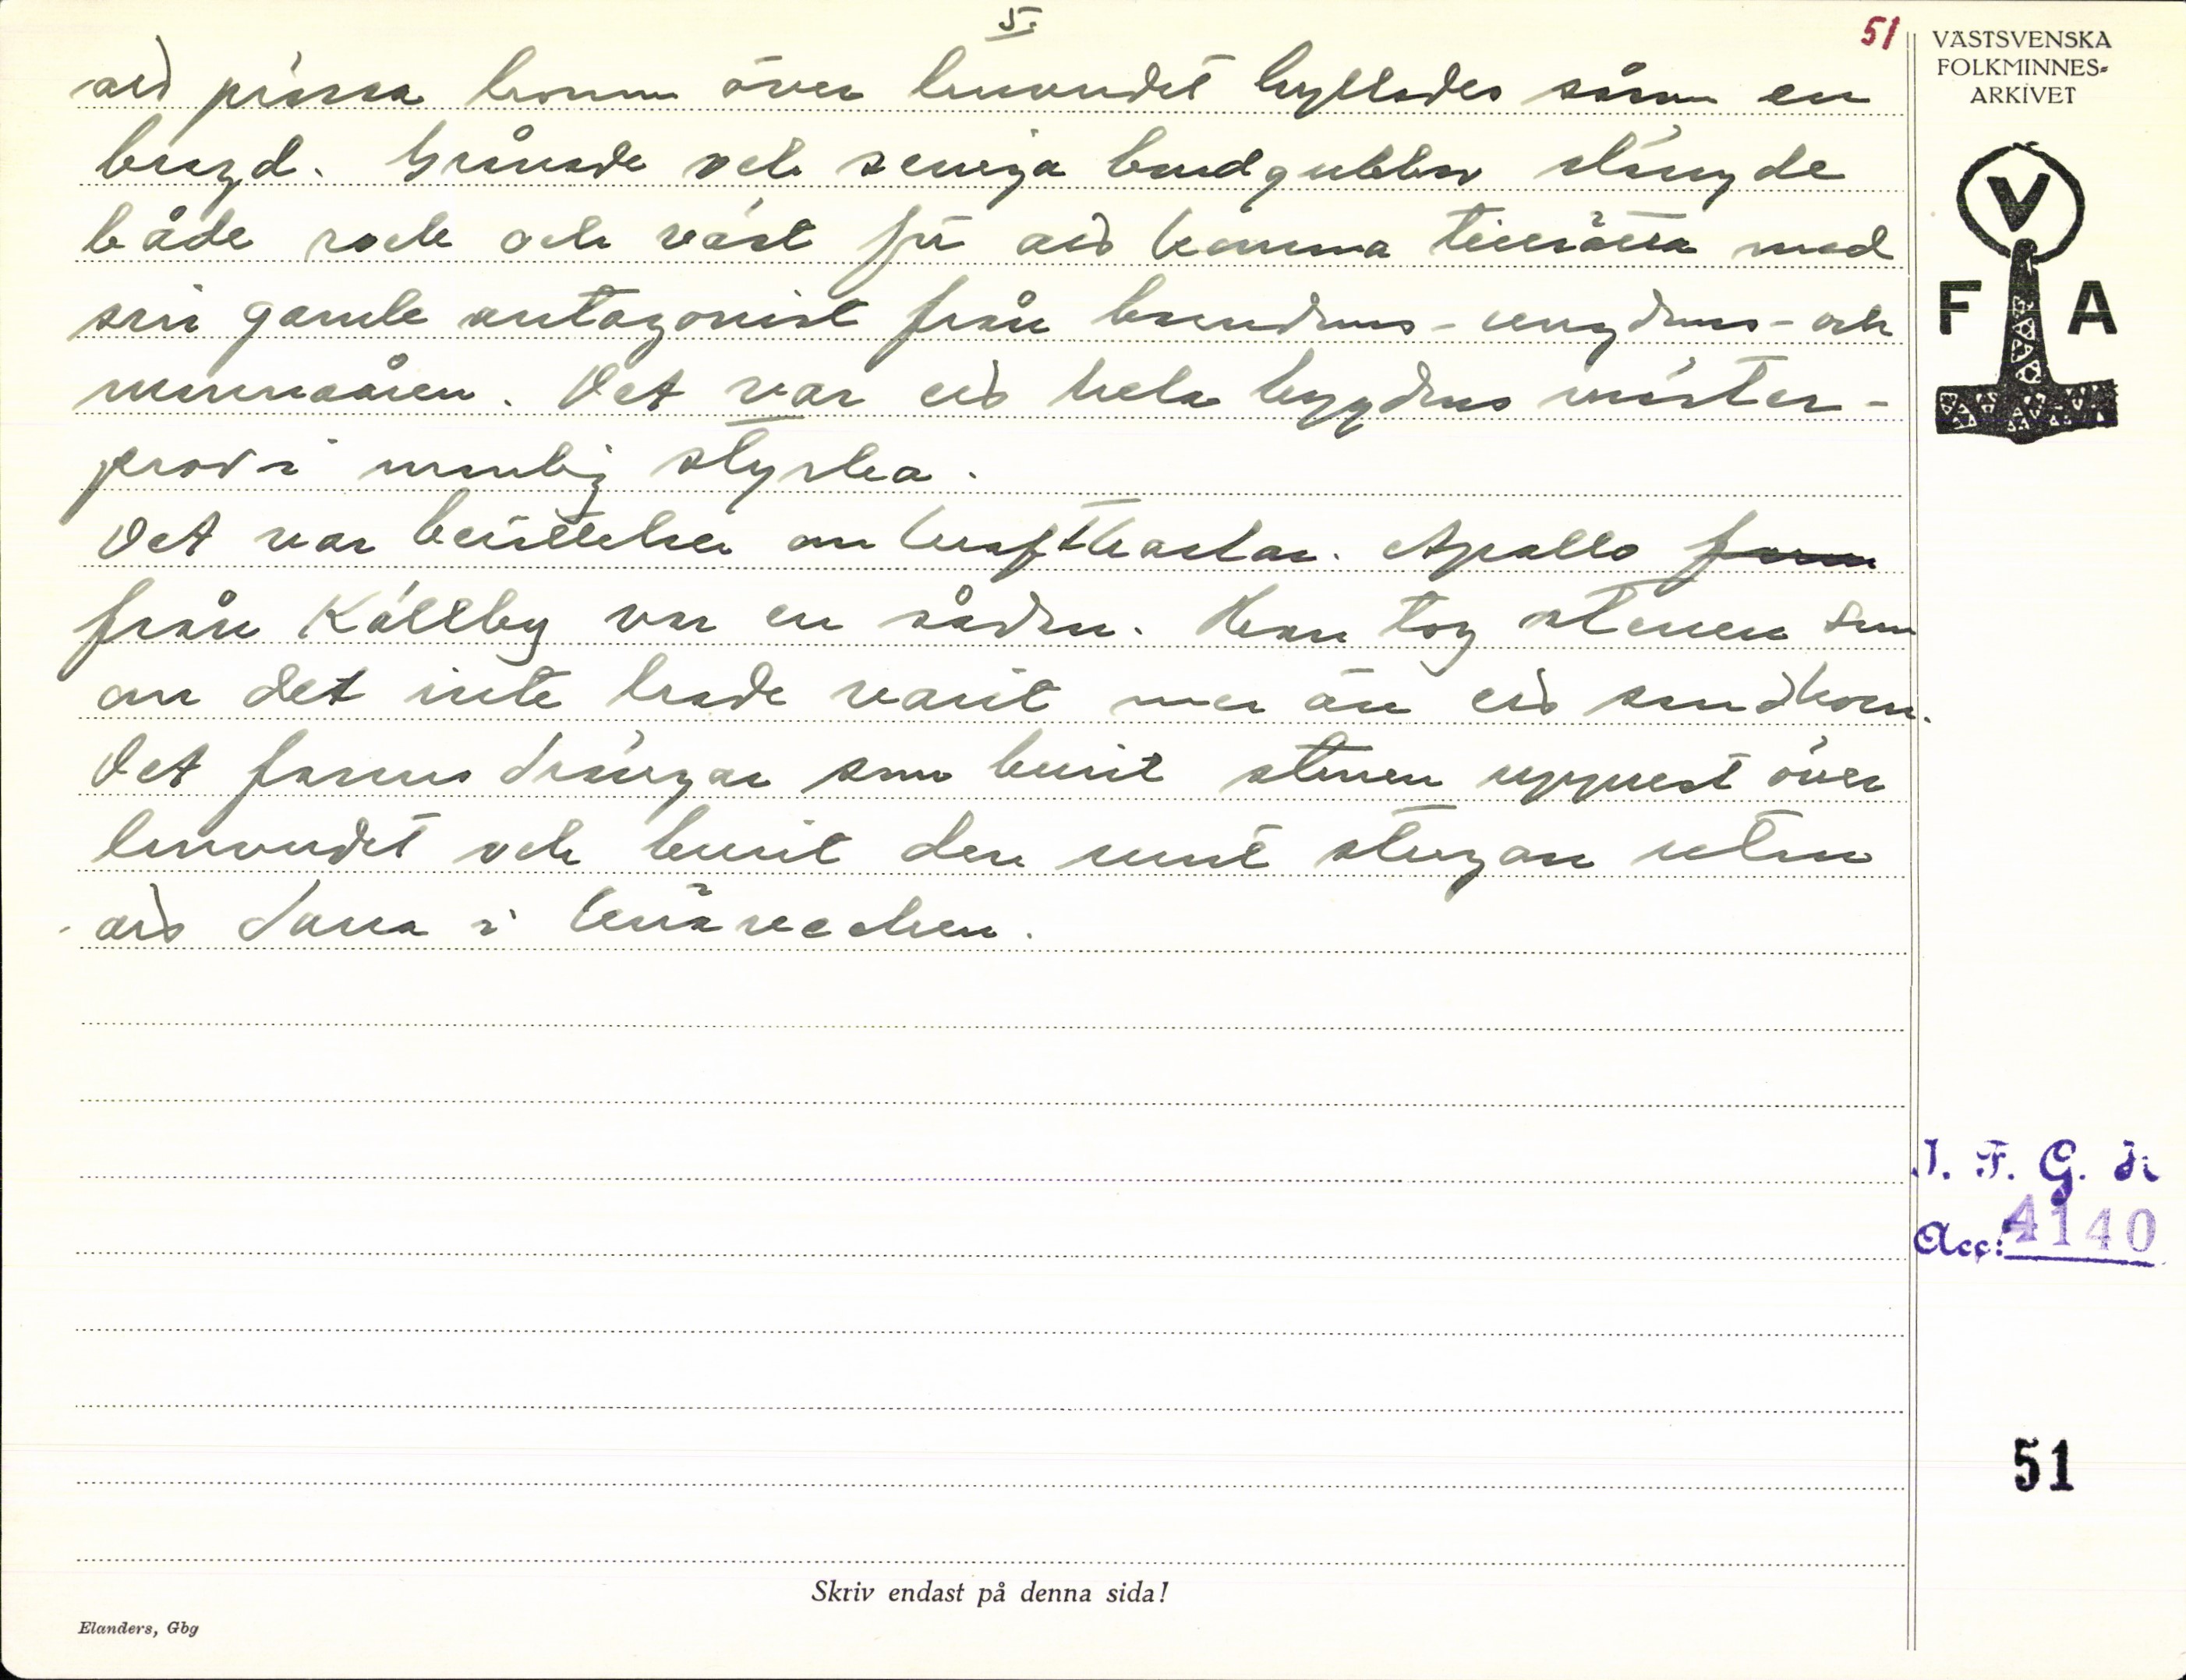 5.
51
att pressa honom över huvudet hyllades som en
bragd. Grånade och seniga bondgubbar slängde
både rock och väst för att komma tillrätta med
sin gamle antagonist från barndoms- ungdoms- och
mannaåren. Det var ett hela bygdens mäster-
prov i manlig styrka.
Det var berättelser om kraftkarlar. Apollo
från Källby var en sådan. Han tog stenen som
om det inte hade varit mer än ett sandkorn.
Det fanns drängar som burit stenen uppräst över
huvudet och burit den runt stugan utan
att darra i knävecken.
Skriv endast på denna sida!
Elanders, Gbg
VÄSTSVENSKA
FOLKMINNES-
ARKIVET
V
F A
I. F. G. H.
Acc: 4140
51